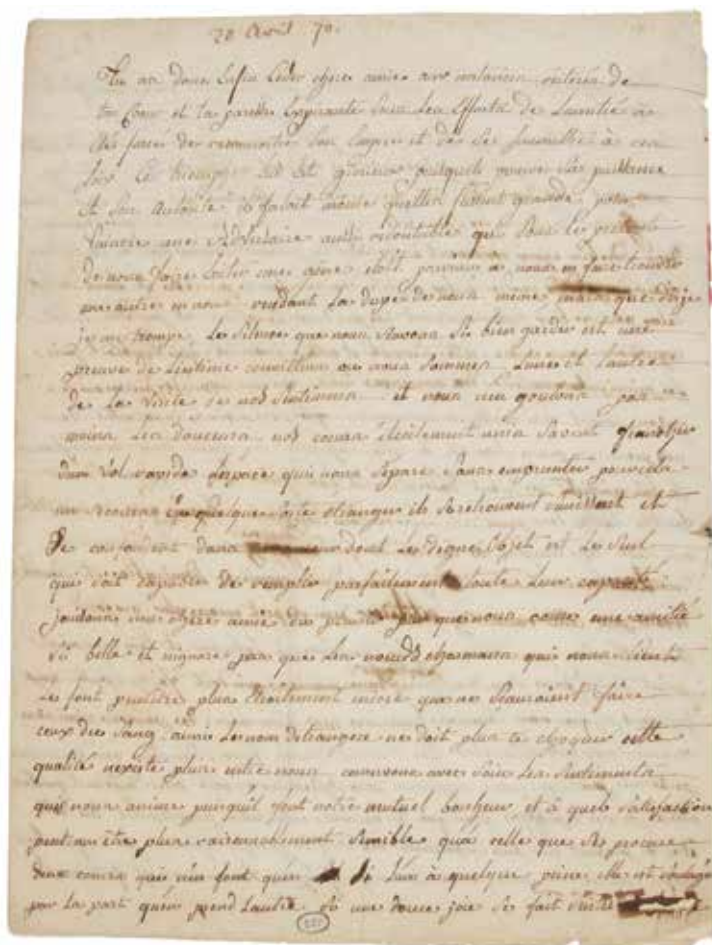 28 Avril 70.
Tu as donc Enfin Cedée chere amie aux instances réitérés de
ton Coeur et ta paresse Expirante sous les Efforts de Lamitié a
été forcé de reconnoitre Son Empire et de Se soumettre à ses
loix Ce triomphe Est glorieux puisqu'il prouve Sa puissance
Et Son Autorité il faloit même quelles fussent grande pour
Vaincre une Adversaire aussi redoutable qui Sous le pretexte
de nous faire Eviter une peine étoit parvenue a nous en faire trouver
une autre en nous rendant La dupe de nous même mais que dije
je me trompe Le Silence que nous Avons Si bien gardée est une
preuve de Lintime conviction ou nous Sommes Lune et Lautre
de La verité de nos Sentimens et nous n'en goutons pas
moins Les douceurs nos coeurs étroitement unis Savent franchir
dun Vol rapide Lespace qui nous Separe Sans emprunter pour cela
un secours En quelque sorte étranger ils Se retrouvent et
Se confondent dans dont Le digne Objet est Le Seul
qui soit capable de remplir parfaitement toute Leur capacité
jouissons ma chere amie du que nous cause une amitié
Si belle et nignore pas que Les noeuds charmans qui nous Lient
Le font plus étroitement encore que ne Sauroient faire
ceux du Sang ainsi Le nom detrangere ne doit plus te choquer cette
qualité nexiste plus entre nous conservons avec Soin Les Sentimens
qui nous anime puisquil font notre mutuel bonheur, et à quels Satisfaction
peut on être plus raisonnablement Sensible qua celle que Se procure
deux coeurs qui n'en font qu'un Lun à quelque peine elle est
par La part qu'en prend Lautre Si une douce joie Se fait